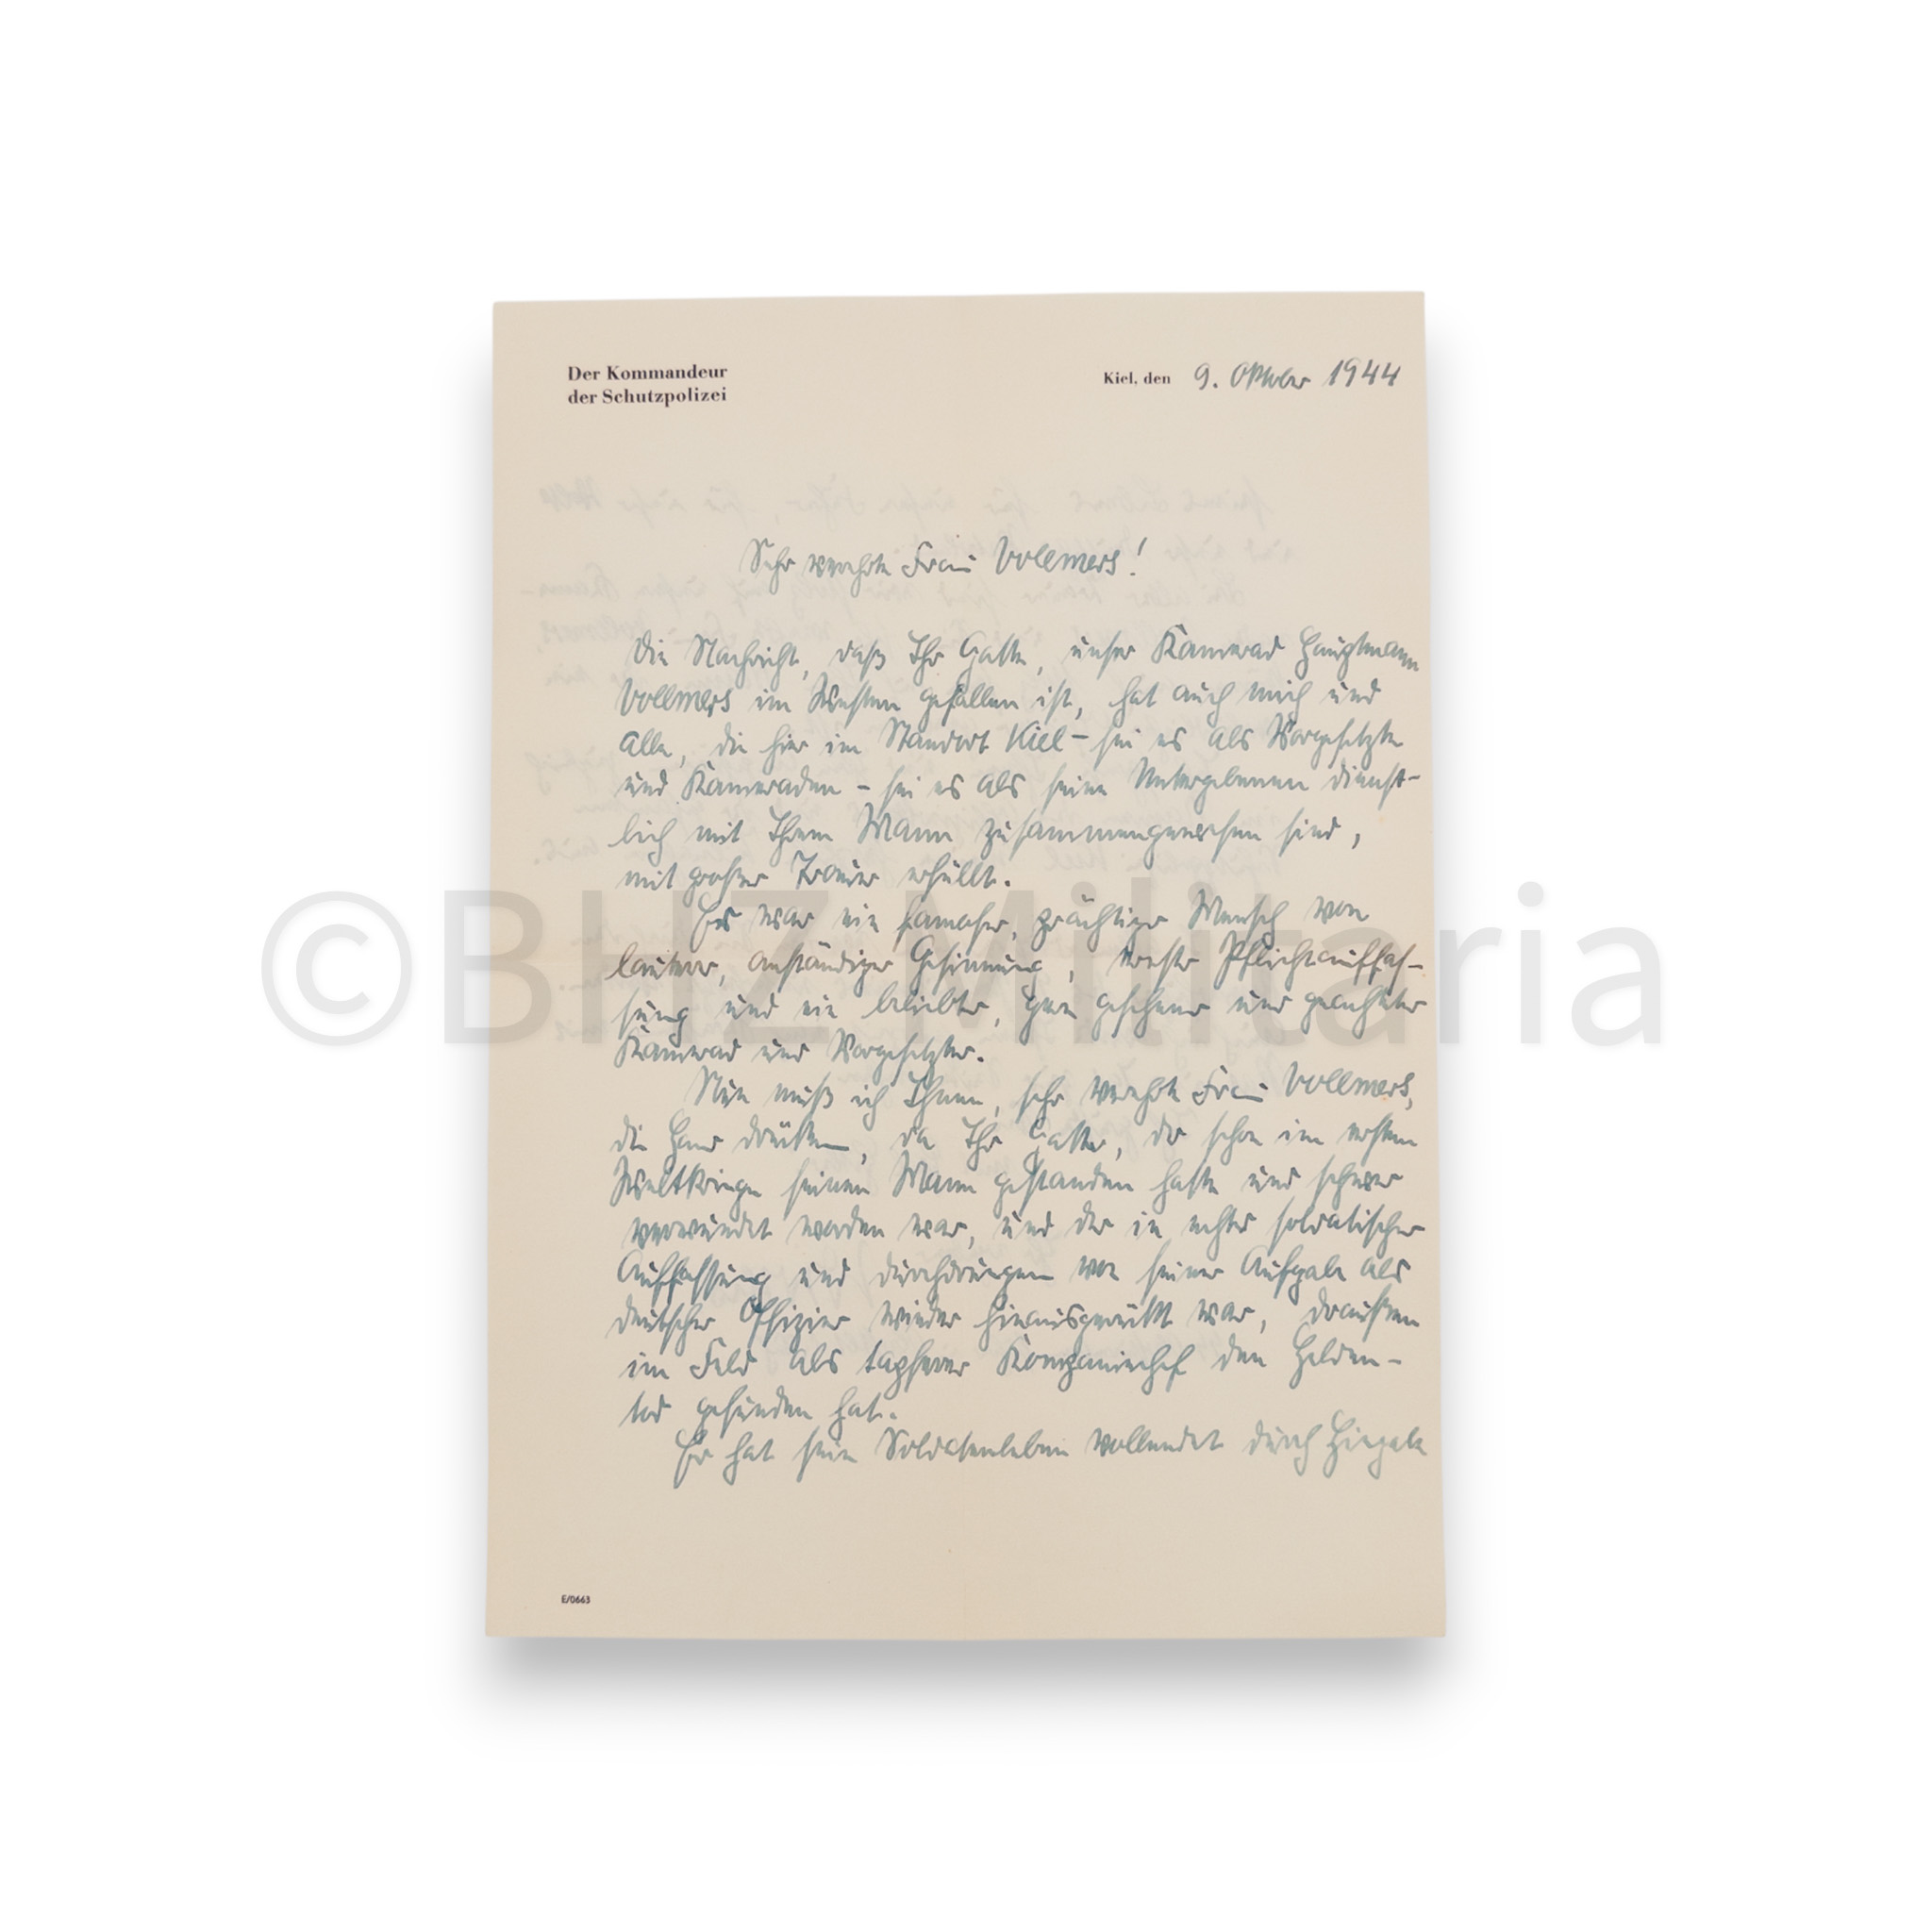 Der Kommandeur
der Schutzpolizei
Kiel, den 9. Oktober 1944
Sehr verehrte Frau Vollmers!
Die Nachricht, daß Ihr Gatte, unser Kamerad Hauptmann
Vollmers im Westen gefallen ist, hat auch mich und
Alle, die hier im Standort Kiel – sei es als Vorgesetzte
und Kameraden – sei es als seine Untergebenen dienst-
lich mit Ihrem Mann zusammengewesen sind,
mit großer Trauer erfüllt.
Es war ein famoser, prächtiger Mensch von
lauterer, anständiger Gesinnung, Pflichtauffas-
sung und ein beliebter, gern gesehener und geachteter
Kamerad und Vorgesetzter.
Nun muß ich Ihnen, sehr verehrte Frau Vollmers,
die Hand drücken, da Ihr Gatte, der schon im ersten
Weltkriege seinen Mann gestanden hatte und schwer
verwundet worden war, und der in echter soldatischer
Auffassung und durchdrungen von seiner Aufgabe als
deutscher Offizier wieder hinausgerückt war, draußen
im Feld als tapferer Kompaniechef den Helden-
tod gefunden hat.
Er hat sein Soldatenleben vollendet durch Hingabe
E/0663
©BHZ Militaria